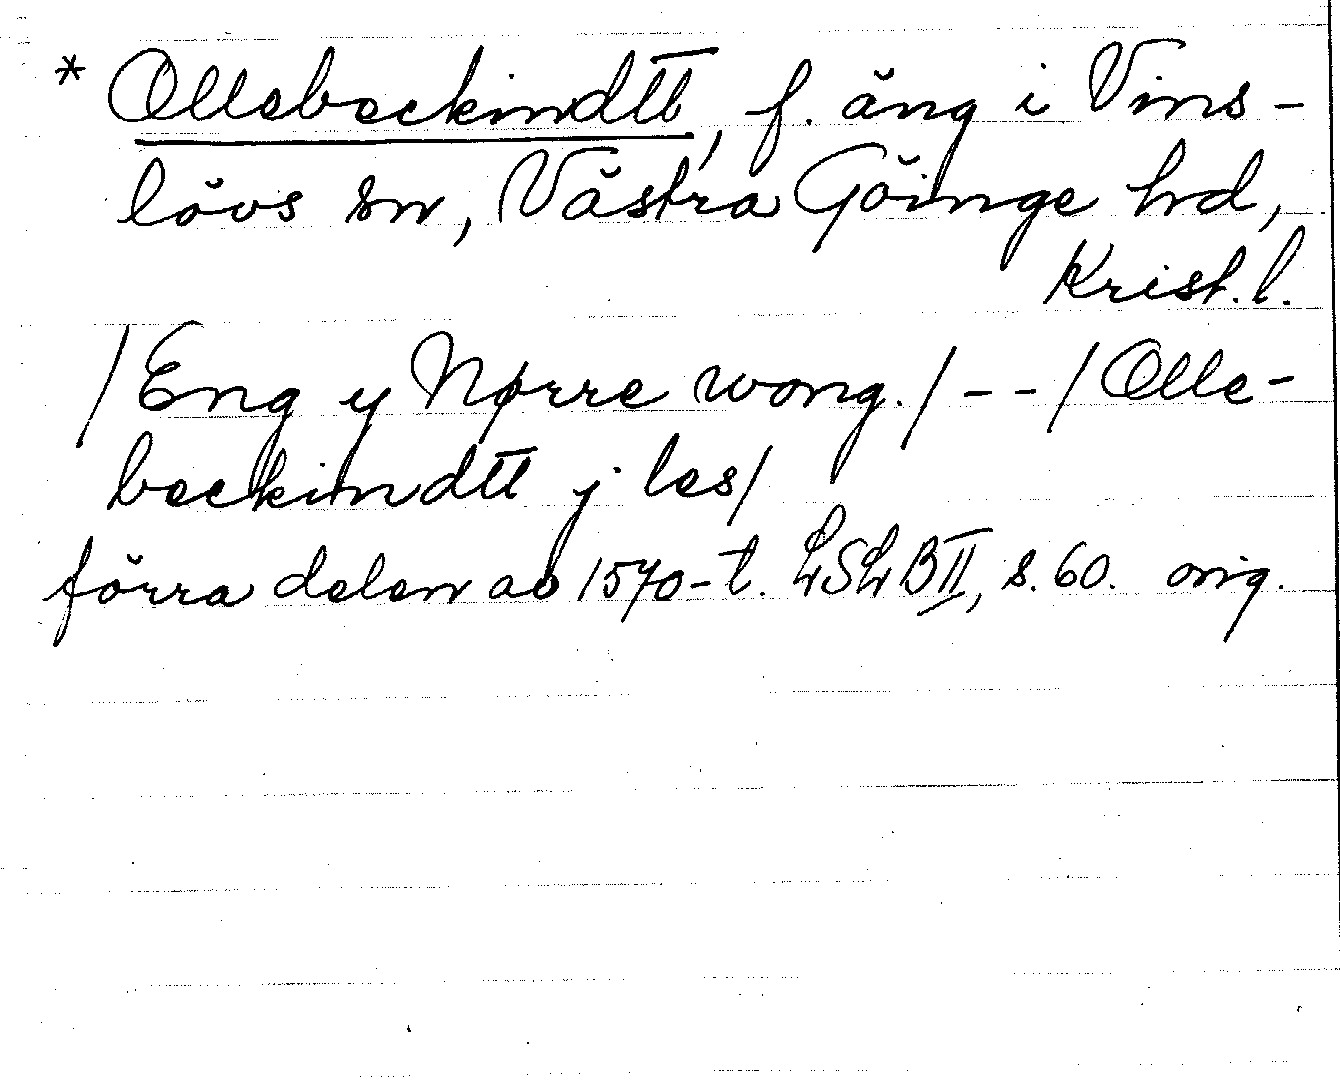 * Ollebeckindtt, f. äng i Vins-
lövs sn, Västra Göinge hd,
Krist. l.
/Eng y Nørre wong./--/Olle-
beckindtt j les/
förra delen av 1570-t. LSLB II, s. 60. orig.